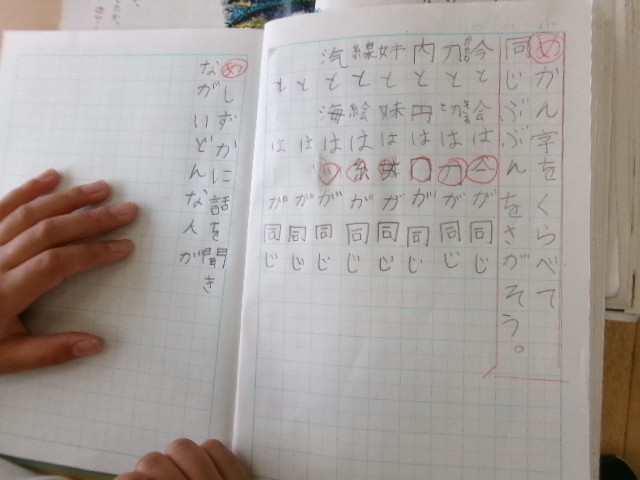 めかん字をくらべて
同じぶぶんをさがそう。
今と会は亼が同じ
刀と切は刀が同じ
内と円は冂が同じ
姉と妹は女が同じ
線と絵は糸が同じ
汽と海は氵が同じ
とはが同じ
とはが同じ
めしずかに話を聞き
ながいどんな人が